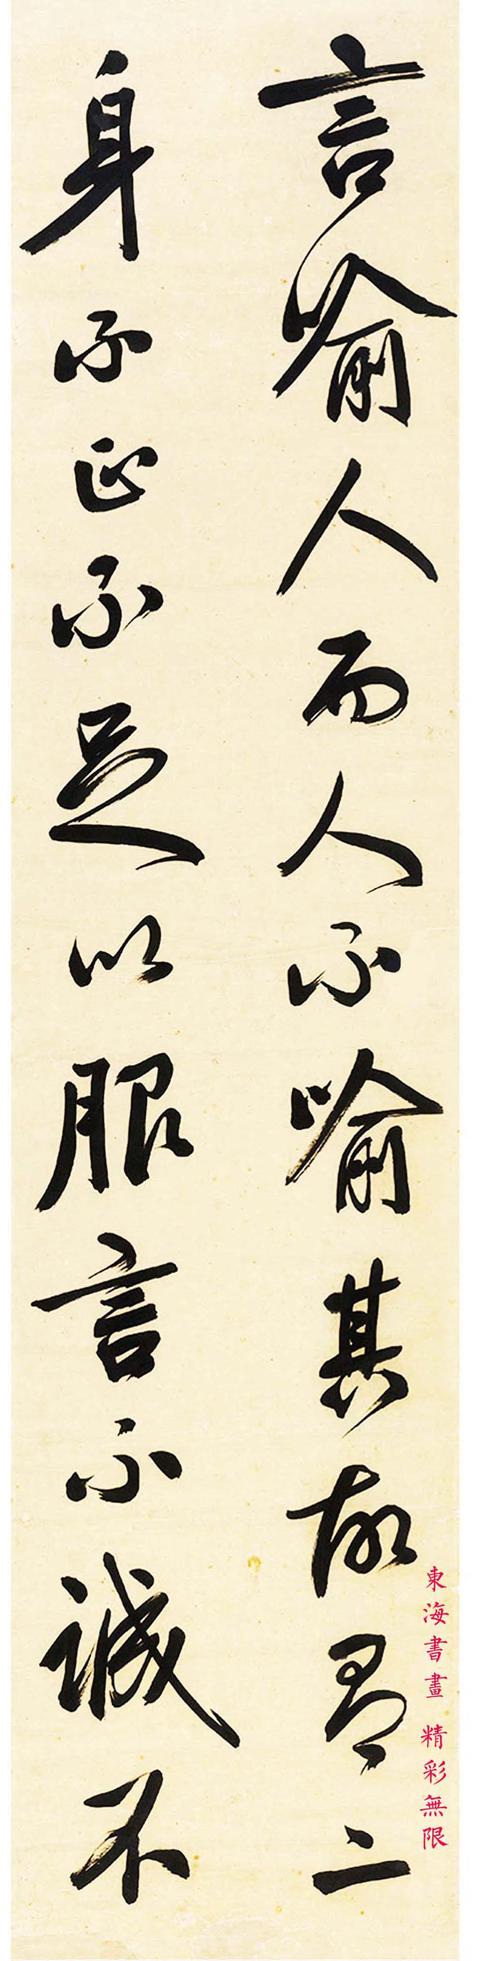 言喻人而人不喻其故有二
身不正不足以服言不誠不
東海書畫 精彩無限